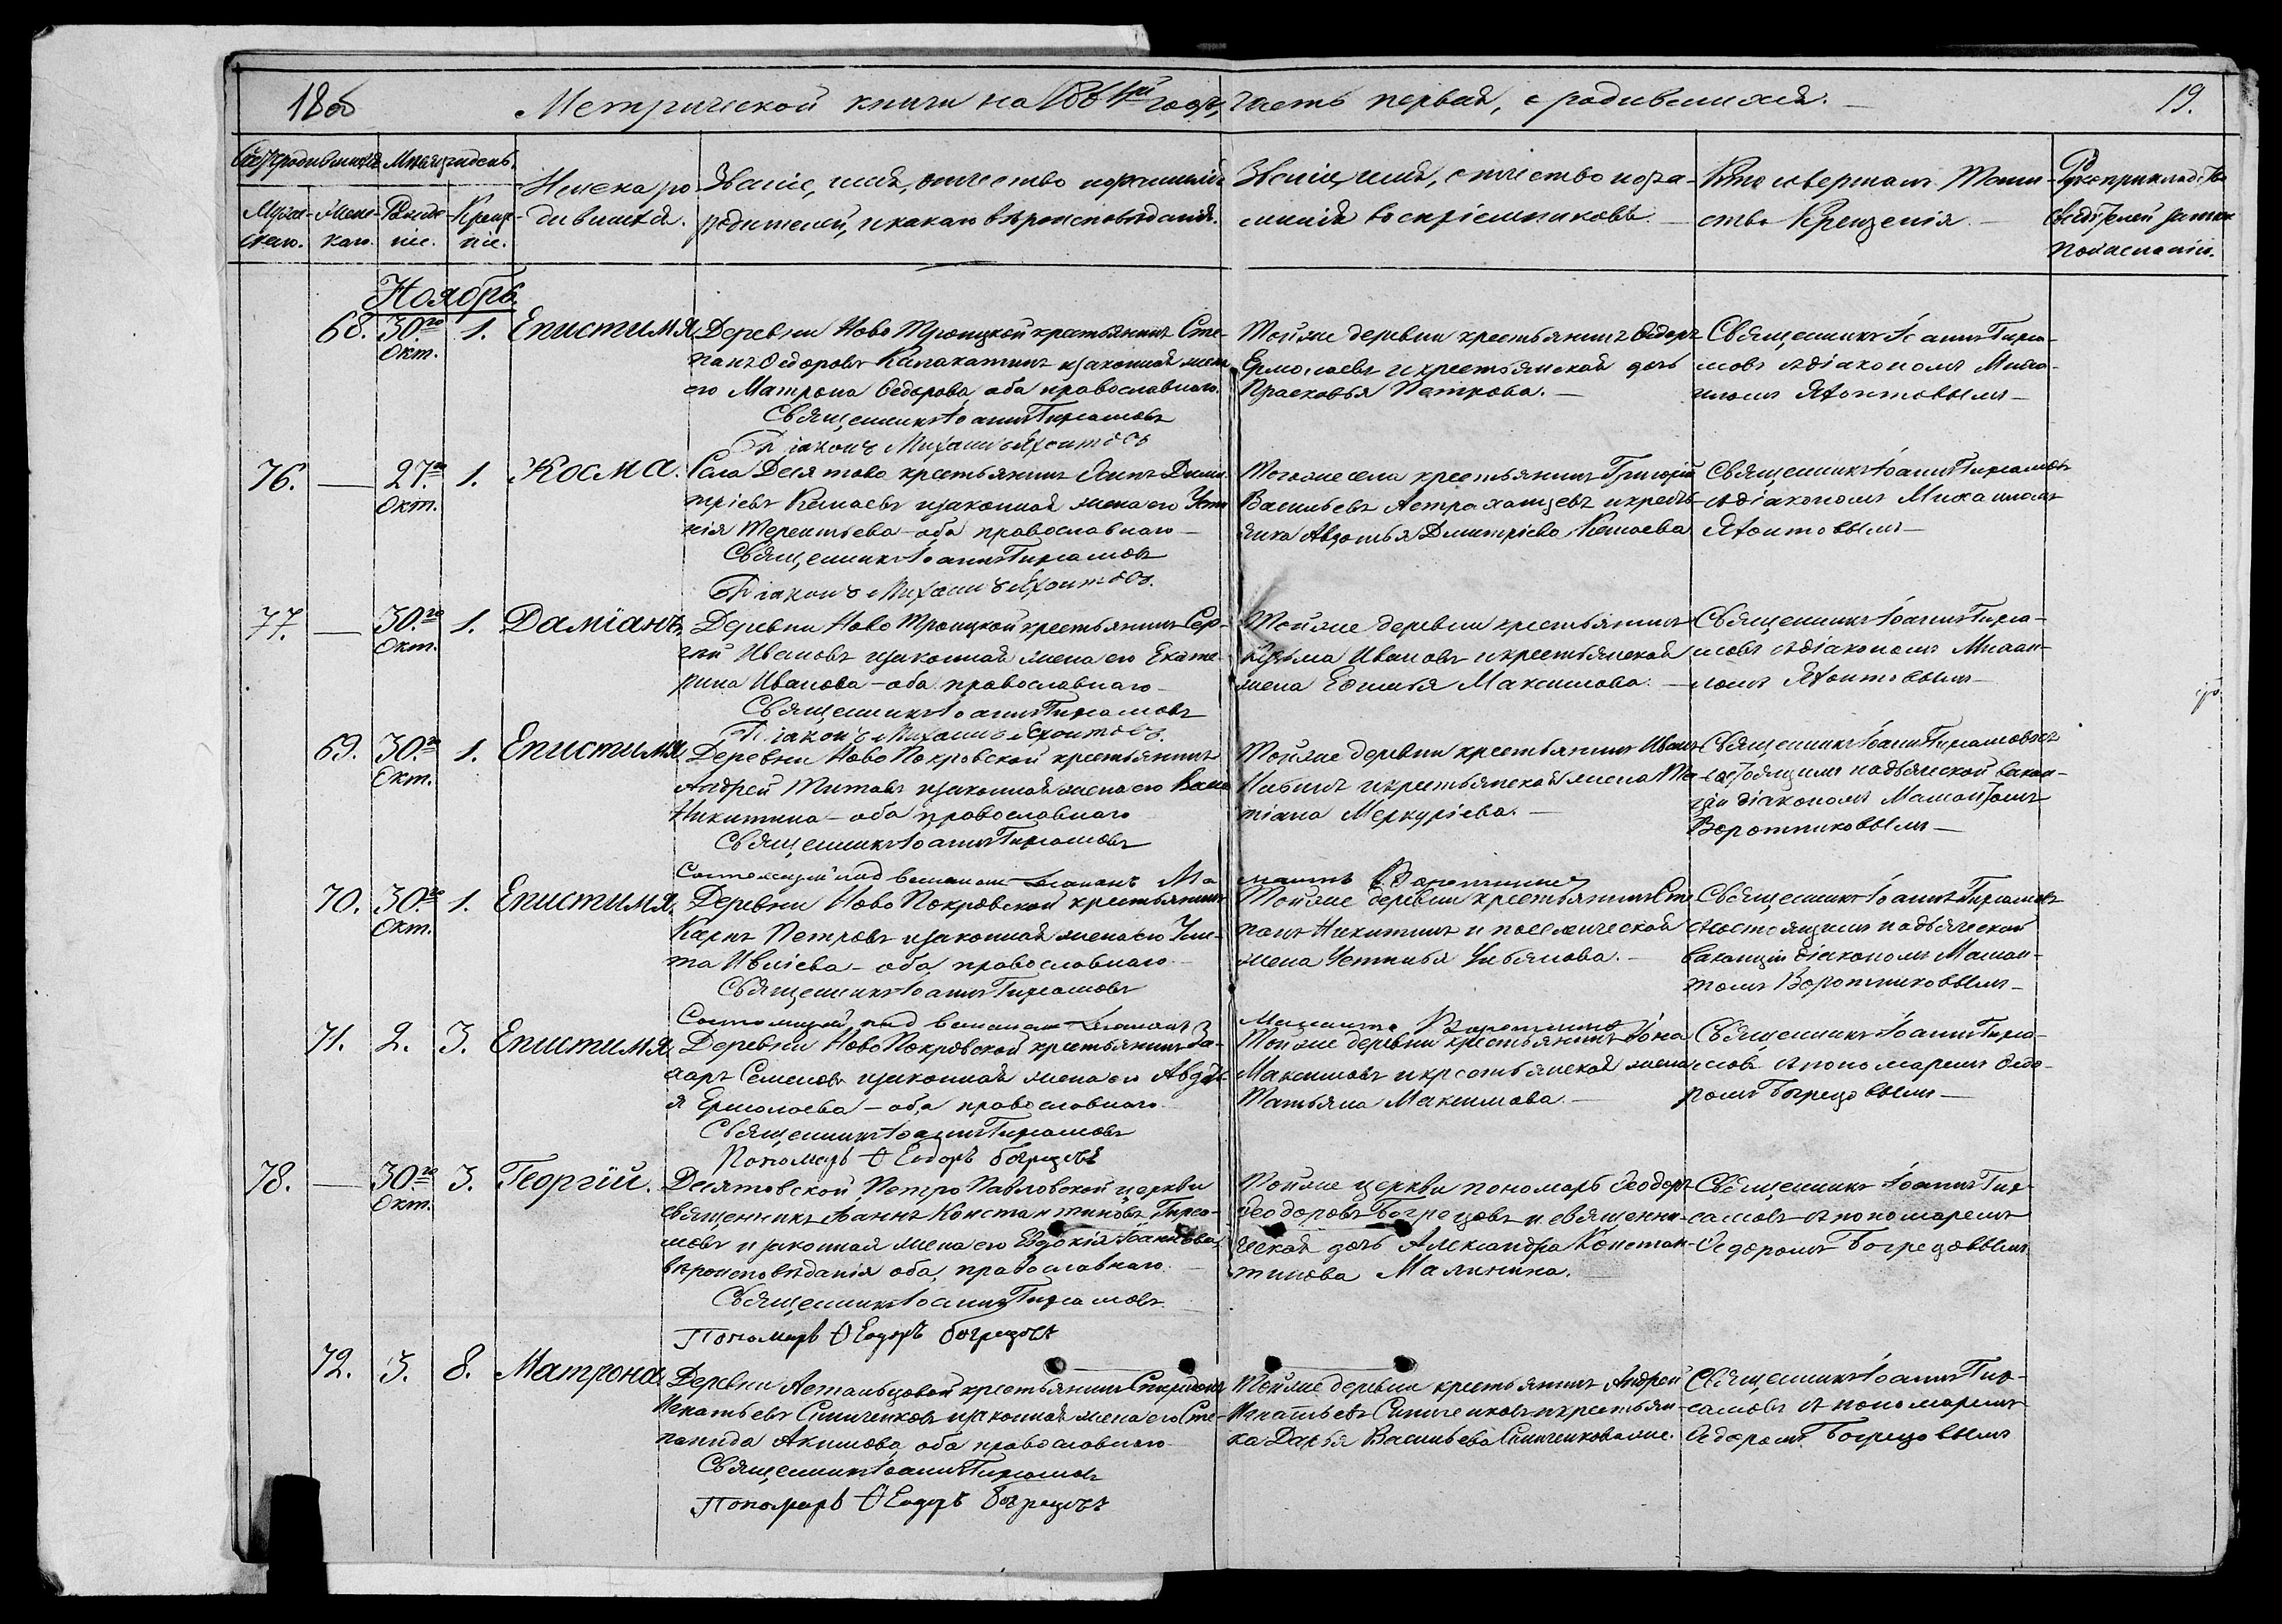 Метрической книги на 1864й годъ, часть первая, о родившихся.
19.
Счетъ родившихся
Мѣсяцъ и день.
Муже-
скаго.
Жен-
каго.
Рожде-
ніе.
Крещ-
ніе.
Имена ро-
дившихся.
Званіе, имя, отчество и фамилія
родителей, и какаго вѣроисповѣданія.
Званіе, имя, отчество и фа-
милія воспріемниковъ.
Кто совершалъ Таин-
ство Крещенія.
Рукоприкладство
свидѣтелей
по желанію.
Ноябрь.
68. 30го Окт. 1. Епистимя
Деревни Ново Троицкой крестьянинъ Сте-
панъ Ѳедоровъ и законная жена
его Матрона Ѳедорова, оба православнаго.
Священникъ Іоаннъ Гирсамовъ
Діаконъ Михаилъ Яхонтовъ
Тойже деревни крестьянинъ Ѳедоръ
Ермолаевъ и крестьянская дочь
Прасковья Петрова.
Священникъ Іоаннъ Гирса-
мовъ съ діакономъ Миха-
иломъ Яхонтовымъ
76. — 27го Окт. 1. Косма.
Села Десятово крестьянинъ Осипъ Дими-
тріевъ Кешаевъ и законная жена его Усти-
нія Терентьева оба православнаго
Священникъ Іоаннъ Гирсамовъ
Діаконъ Михаилъ Яхонтовъ.
Тогоже села крестьянинъ Григорій
Васильевъ Астраханцевъ и кресть-
янка Авдотья Дмитріева Кешаева
Священникъ Іоаннъ Гирсамовъ
съ діакономъ Михаиломъ
Яхонтовымъ
77. — 30го Окт. 1. Даміанъ.
Деревни Ново Троицкой крестьянинъ Сер-
гѣй Ивановъ и законная жена его Екате-
рина Иванова — оба православнаго
Священникъ Іоаннъ Гирсамовъ
Діаконъ Михаилъ Яхонтовъ
Тойже деревни крестьянинъ
Кузьма Ивановъ и крестьянская
жена Максимова.
Священникъ Іоаннъ Гирса-
мовъ съ діакономъ Михаи-
ломъ Яхонтовымъ
69. 30го Окт. 1. Епистимя
Деревни Ново Покровской крестьянинъ
Андрей Титовъ и законная жена его
Никитина — оба православнаго
Священникъ Іоаннъ Гирсамовъ
Состоящій над вакансіи діаконъ Ма
монтъ
Тойже деревни крестьянинъ Иванъ
и крестьянская жена Та-
тіана Меркурієва.
Священникъ Іоаннъ Гирсамовъ съ
состоящимъ на дьяческой вакан-
ціи діакономъ Мамонтомъ
Воротниковымъ
70. 30го Окт. 1. Епистимя.
Деревни Ново Покровской крестьянинъ
Карпъ Петровъ и законная жена его Ули-
та Ивліева — оба православнаго
Священникъ Іоаннъ Гирсамовъ
Состоящій над вакансіи діаконъ
Мамонтъ
Тойже деревни крестьянинъ Сте-
панъ Никитинъ и поселенческой
жена Устинья Ульянова.
Священникъ Іоаннъ Гирсамовъ
съ состоящимъ на дьяческой
ваканціи діакономъ Мамон-
томъ Воротниковымъ
71. 2. 3. Епистимя.
Деревни Ново Покровской крестьянинъ За-
харъ Семеновъ и законная жена его Авдоть-
я Ермолаева — оба православнаго
Священникъ Іоаннъ Гирсамовъ
Пономарь Ѳеодоръ Богрецовъ
Тойже деревни крестьянинъ Іона
Максимовъ и крестьянская жена
Татьяна Максимова.
Священникъ Іоаннъ Гирса-
мовъ съ пономаремъ Ѳедо-
ромъ Богрецовымъ
78. — 30го Окт. 3. Георгій.
Десятовской Петро Павловской церкви
священникъ Іоаннъ Константиновъ Гирса-
мовъ и законная жена его Евдокія Іоаннова,
вѣроисповѣданія оба православнаго.
Священникъ Іоаннъ Гирсамовъ.
Пономарь Ѳеодоръ Богрецовъ
Тойже церкви пономарь Ѳеодоръ
Ѳеодоровъ Богрецовъ и священни-
ческая дочь Александра Констан-
тинова Малинина.
Священникъ Іоаннъ Гир-
самовъ съ пономаремъ
Ѳедоромъ Богрецовымъ
72. 3. 8. Матрона.
Деревни крестьянинъ Спиридонъ
Игнатьевъ Синиченковъ и законная жена его Сте-
панида Акимова, оба православнаго
Священникъ Іоаннъ Гирсамовъ
Пономарь Ѳеодоръ Богрецовъ
Тойже деревни крестьянинъ Андрей
Игнатьевъ Синиченковъ и крестьян-
ка Дарья Васильева Синиченкова же.
Священникъ Іоаннъ Гир-
самовъ съ пономаремъ
Ѳедоромъ Богрецовымъ